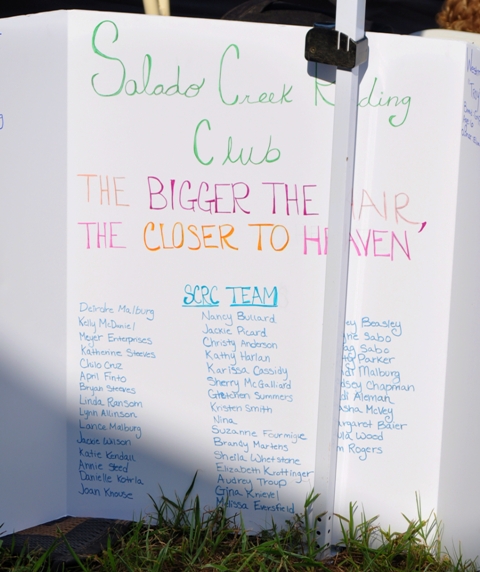 Salado Creek Riding
Club
THE BIGGER THE HAIR,
THE CLOSER TO HEAVEN'
SCRC TEAM
Deirdre Malburg
Kelly McDaniel
Meyer Enterprises
Katherine Steeves
Chilo Cruz
April Finto
Bryan Steeves
Linda Ransom
Lynn Allinson
Lance Malburg
Jacie Wilson
Katie Kendall
Annie Steed
Danielle Kotria
Joan Knouse
Nancy Bullard
Jackie Picard
Christy Anderson
Kathy Harlan
Karissa Cassidy
Sherry McGalliard
Gretchen Summers
Kristen Smith
Nina
Suzanne Fourmigue
Brandy Martens
Sheila Whetstone
Elizabeth Knuttinger
Audrey Troup
Gina Knievel
Melissa Eversfield
Beasley
Sabo
Sabo
Parker
Malburg
Chapman
Aleman
McVey
Baier
Wood
Rogers